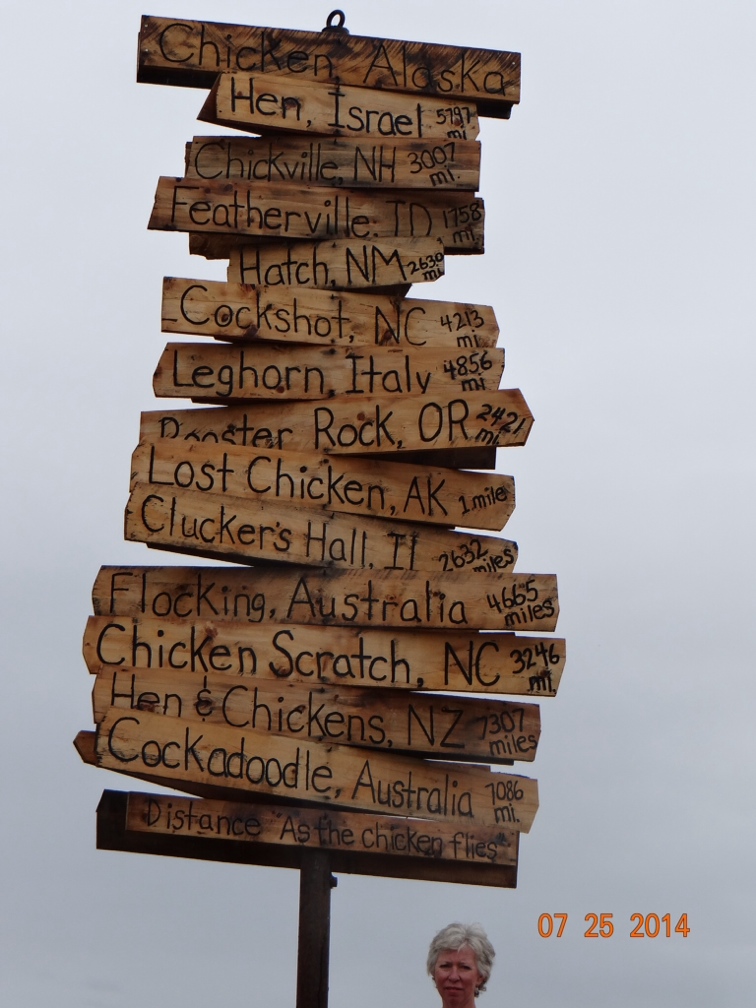 Chicken, Alaska
Hen, Israel 5797 mi
Chickville, NH 3007 mi.
Featherville. ID 1758 mi.
Hatch, NM 2630 mi
Cockshot, NC 4213 mi
Leghorn, Italy 4856 mi
Rooster Rock, OR 2421 mi.
Lost Chicken, AK 1 mile
Clucker's Hall, Il 2632 miles
Flocking, Australia 4665 miles
Chicken Scratch, NC 3246 mi.
Hen & Chickens, NZ 7307 miles
Cockadoodle, Australia 7086 mi.
Distance "As the chicken flies"
07 25 2014